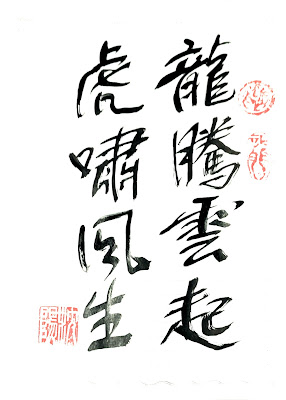 龍騰雲起
虎嘯風生